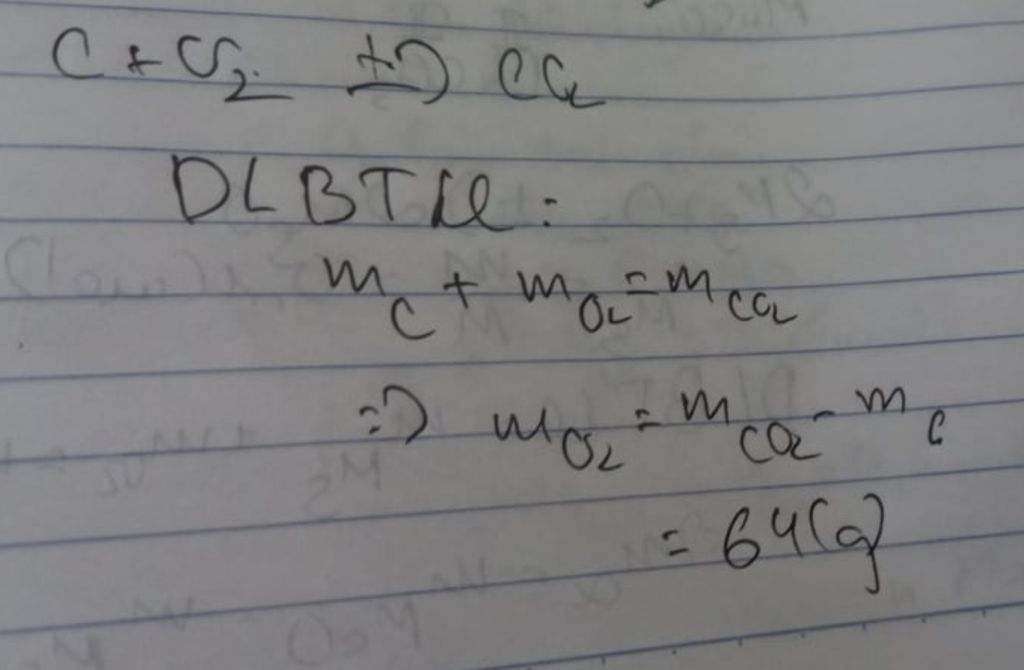 C + O₂ →(t°) CO₂
ĐLBTKL:
m_C + m_O₂ = m_CO₂
=> m_O₂ = m_CO₂ - m_C
= 64(g)